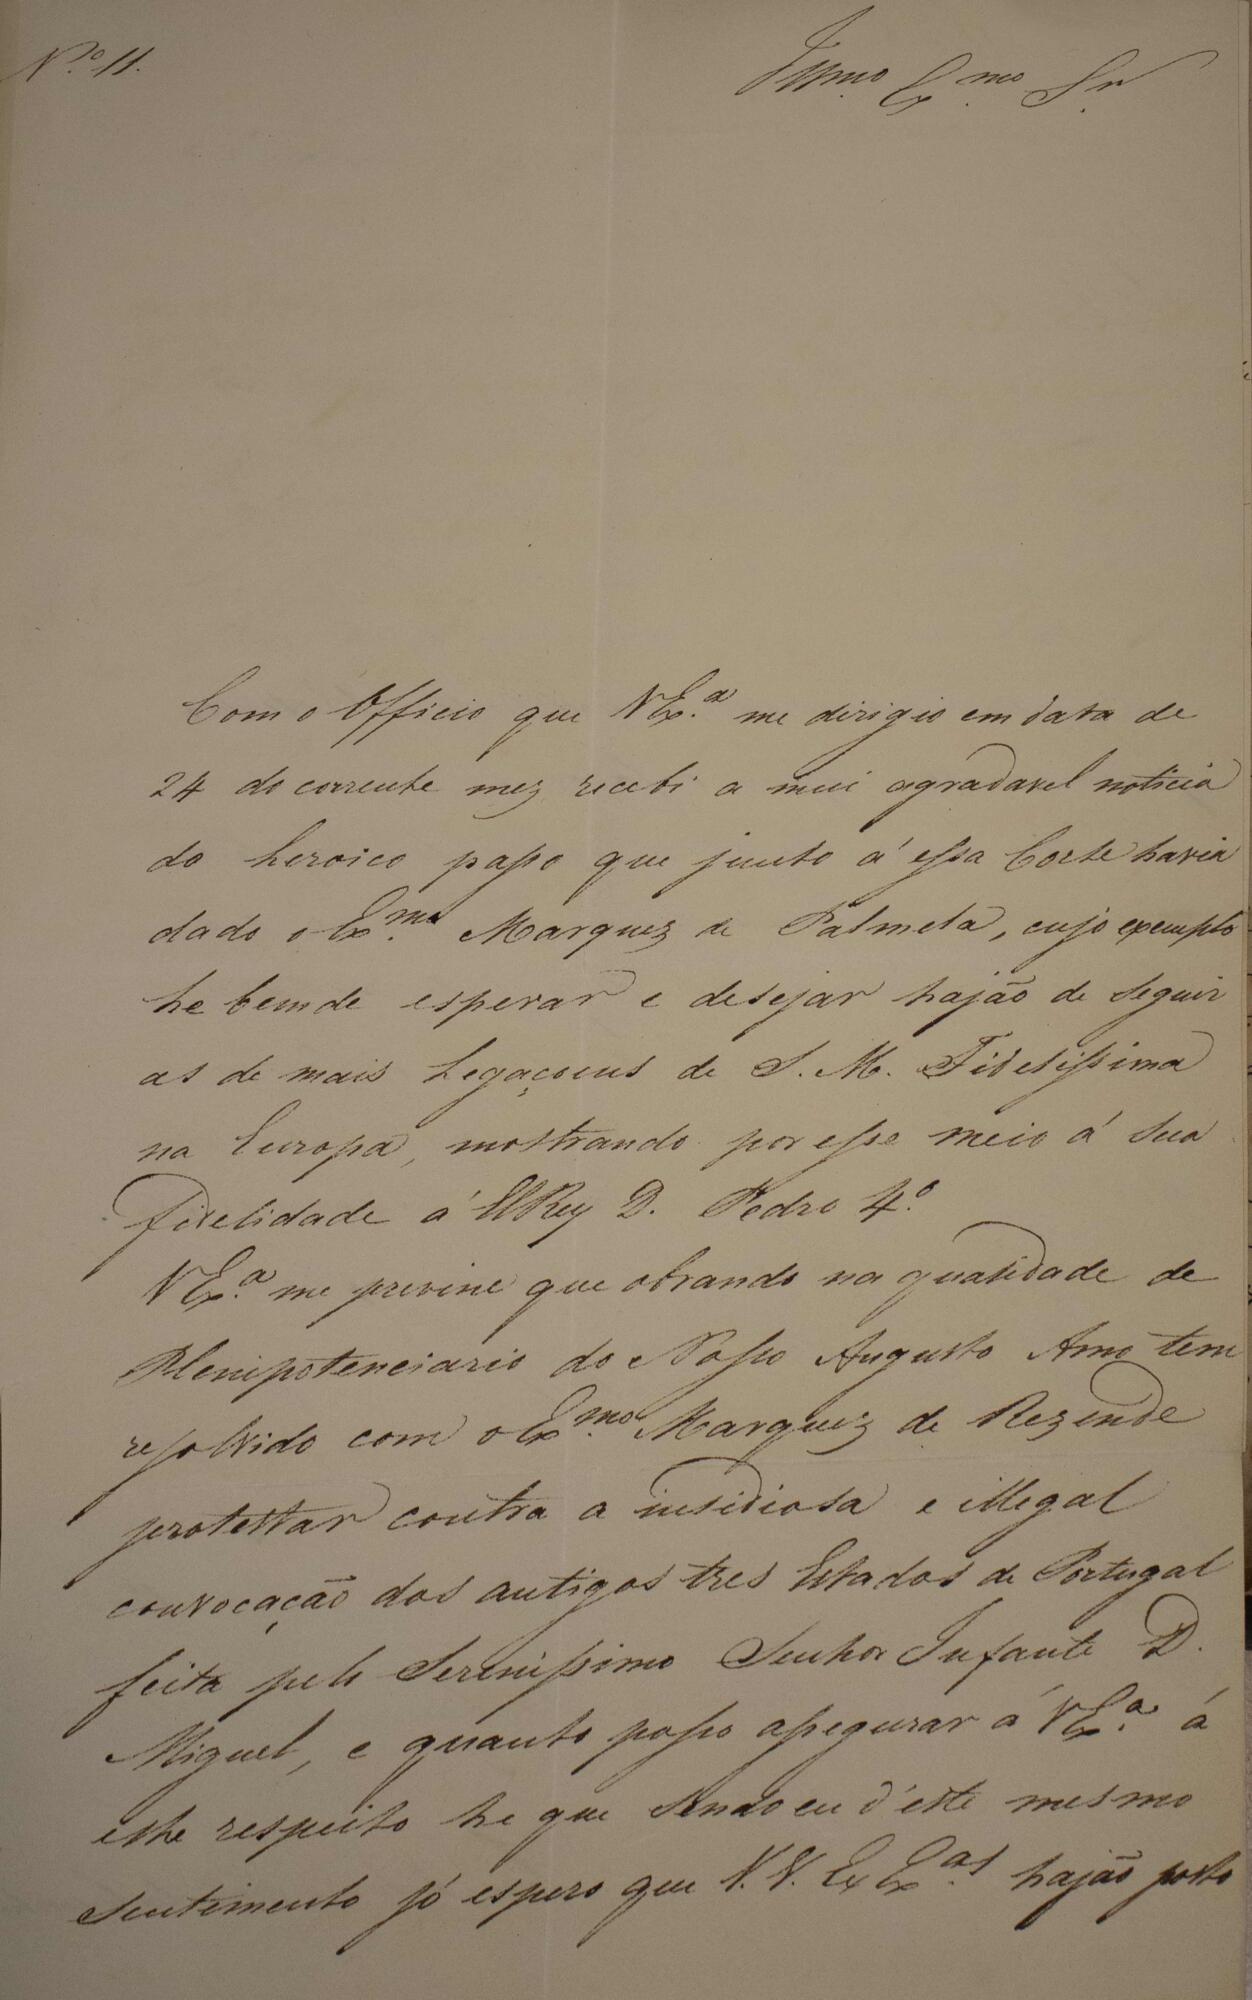 N.º 11.
Illmo Exmo Sr
Com o Officio que VEx.ª me dirigio em data de
24 do corrente mez recebi a mui agradavel noticia
do heroico passo que junto á essa Corte havia
dado o Ex.mo Marquez de Palmela, cujo exemplo
he bem de esperar e desejar hajão de seguir
as de mais Legaçoens de S. M. Fidelissima
na Europa, mostrando por esse meio á sua
fidelidade á ElRey D. Pedro 4.º
VEx.ª me previne que obrando na qualidade de
Plenipotenciario do Nosso Augusto Amo tem
resolvido com o Ex.mo Marquez de Rezende
protestar contra a insidiosa e illegal
convocação dos antigos tres Estados de Portugal
feita pelo Serenissimo Senhor Infante D.
Miguel, e quanto posso assegurar á VEx.ª á
este respeito he que sendo eu d'este mesmo
sentimento só espero que V.V. ExEx.as hajão posto